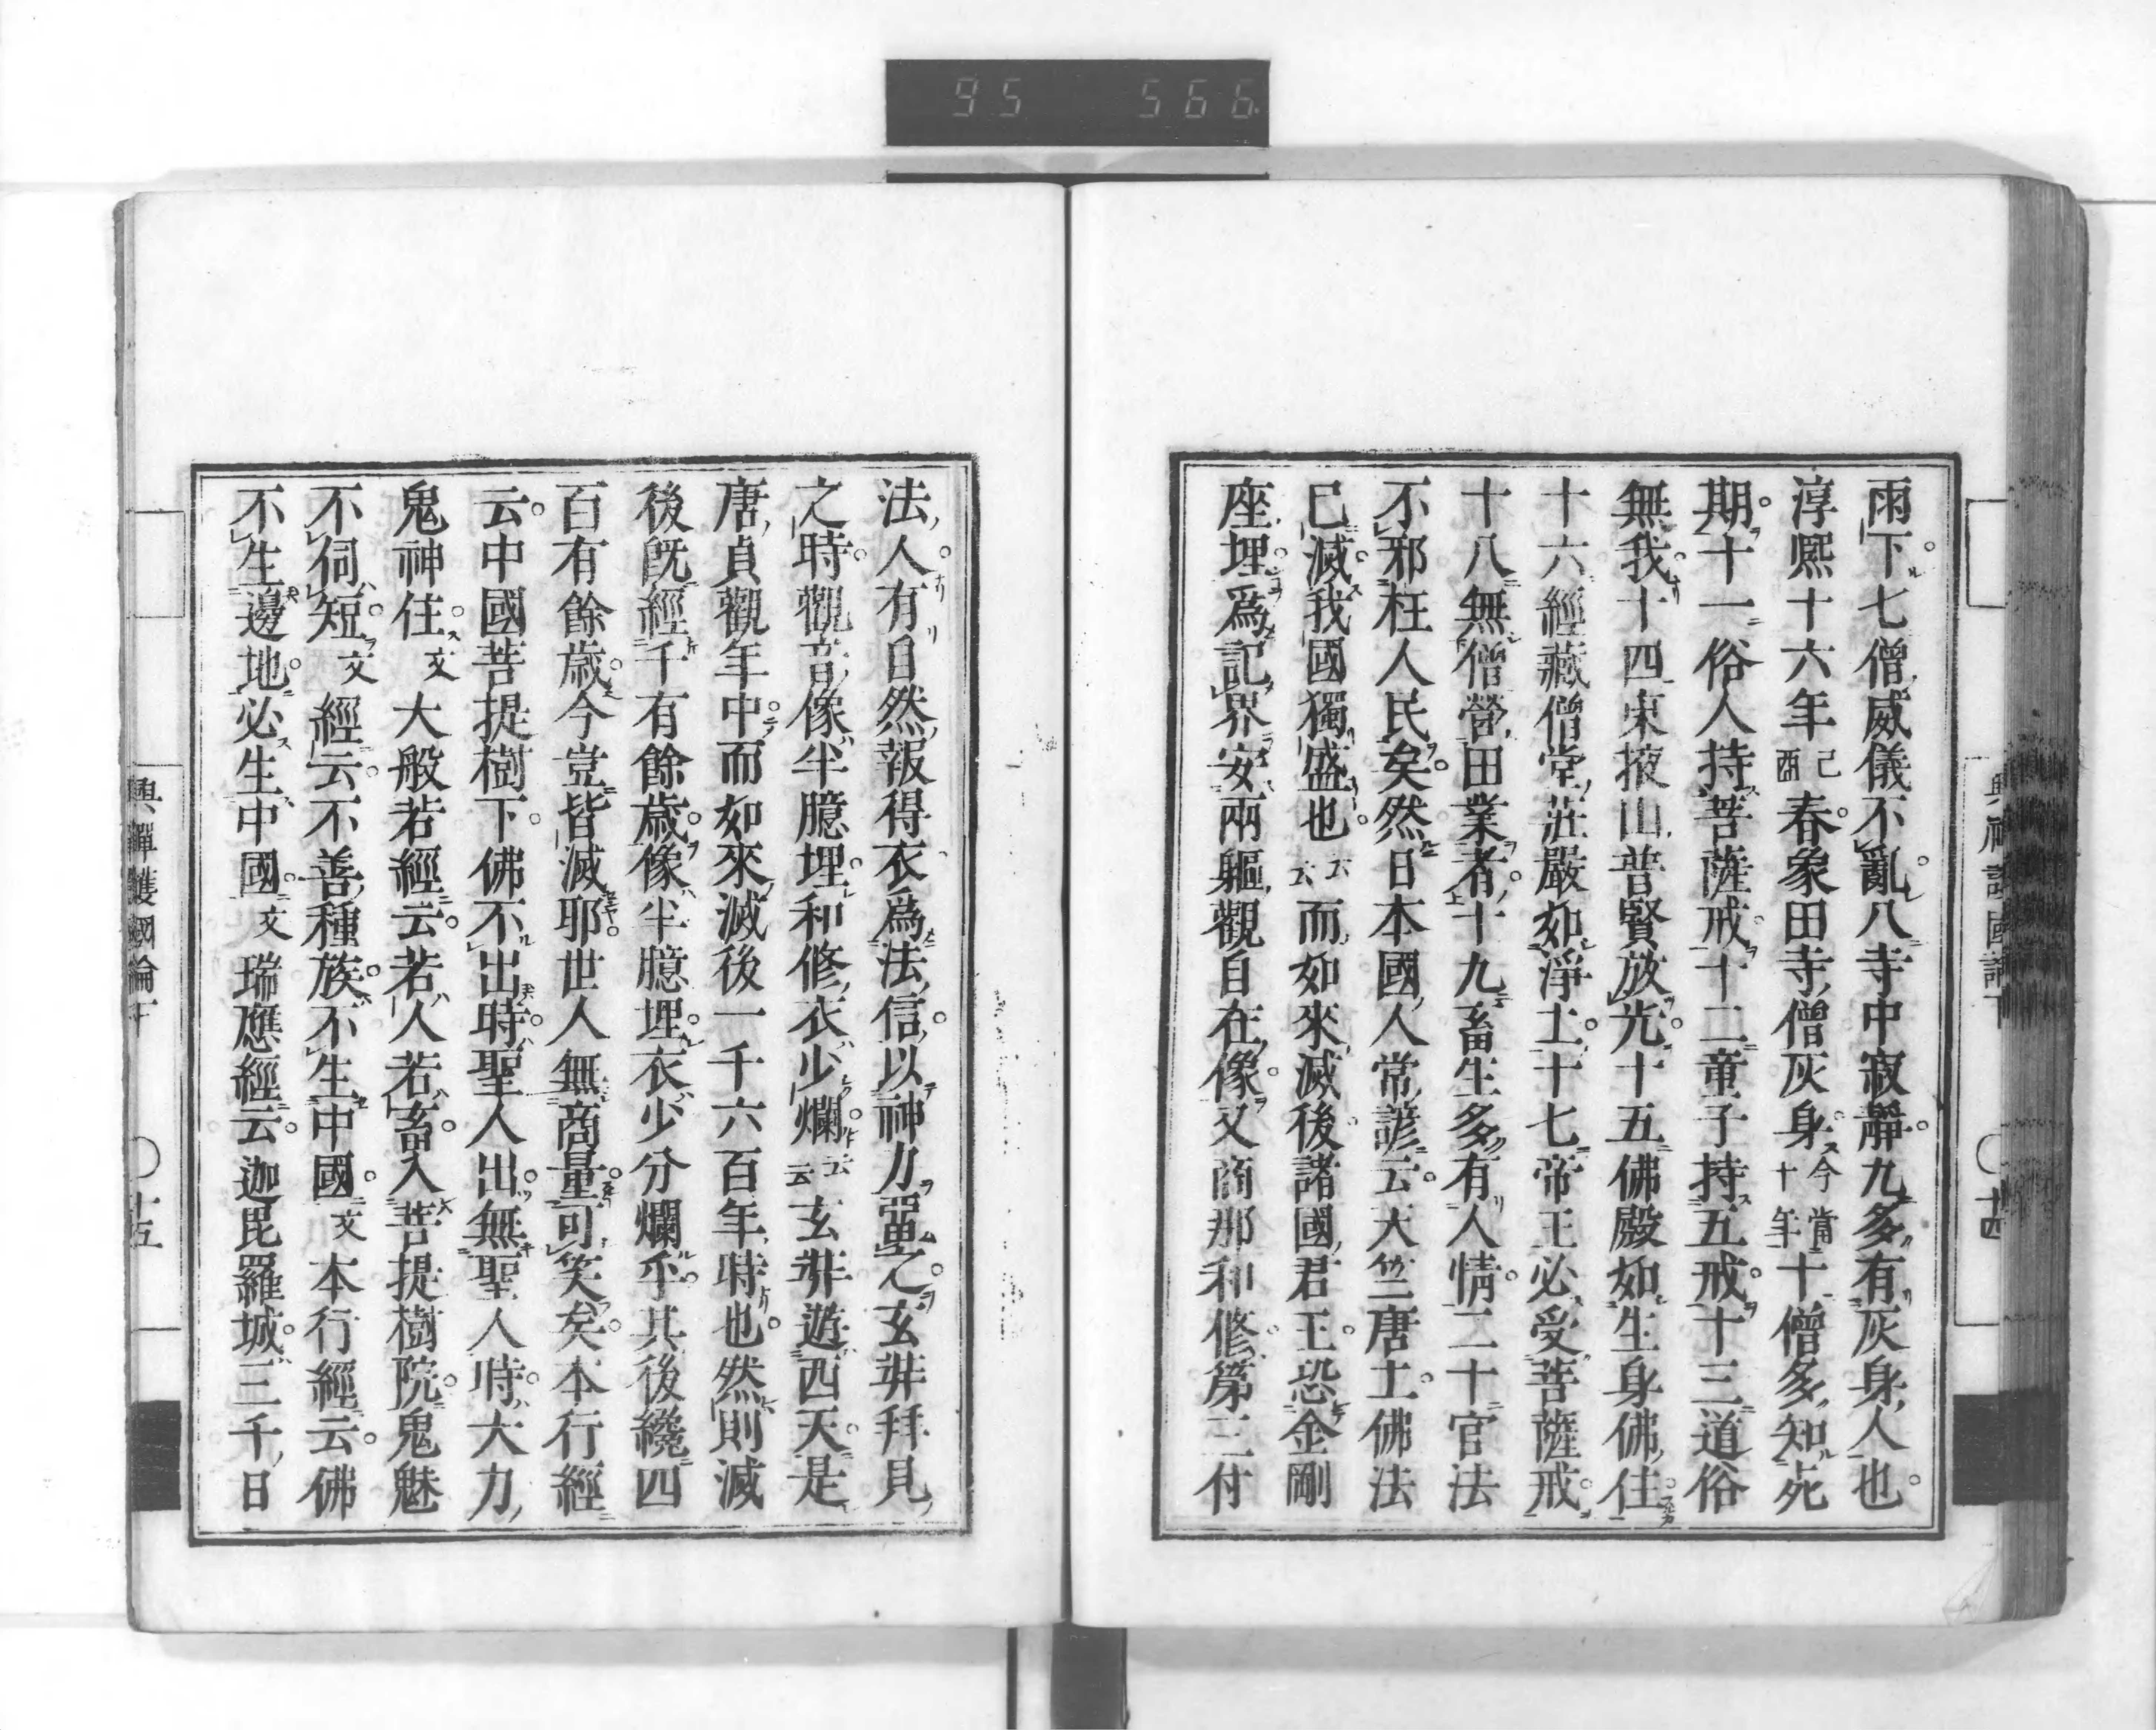 95 566
雨下七僧威儀不亂八寺中寂靜九多有灰身人也
淳熈十六年己酉春象田寺僧灰身今當十年十僧多知死
期十一俗人持菩薩戒十二童子持五戒十三道俗
無我十四東掖山普賢放光十五佛殿如生身佛住
十六經藏僧堂莊嚴如淨土十七帝王必受菩薩戒
十八無僧營田業者十九畜生多有人情二十官法
不邪枉人民矣然日本國人常諺云天竺唐土佛法
已滅我國獨盛也云云而如來滅後諸國君王恐金剛
座埋爲記界安兩軀觀自在像又商那和修第三付
興禪護國論下 〇十四
法人有自然報得衣爲法信以神力畱之玄弉拜見
之時觀音像半臆埋和修衣少爛云云玄弉遊西天是
唐貞觀年中而如來滅後一千六百年時也然則滅
後既經千有餘歲像半臆埋衣少分爛乎其後纔四
百有餘歲今豈皆滅耶世人無商量可笑矣本行經
云中國菩提樹下佛不出時聖人出無聖人時大力
鬼神住文大般若經云若人若畜入菩提樹院鬼魅
不伺短文經云不善種族不生中國文本行經云佛
不生邊地必生中國文瑞應經云迦毘羅城三千日
興禪護國論下 〇十五